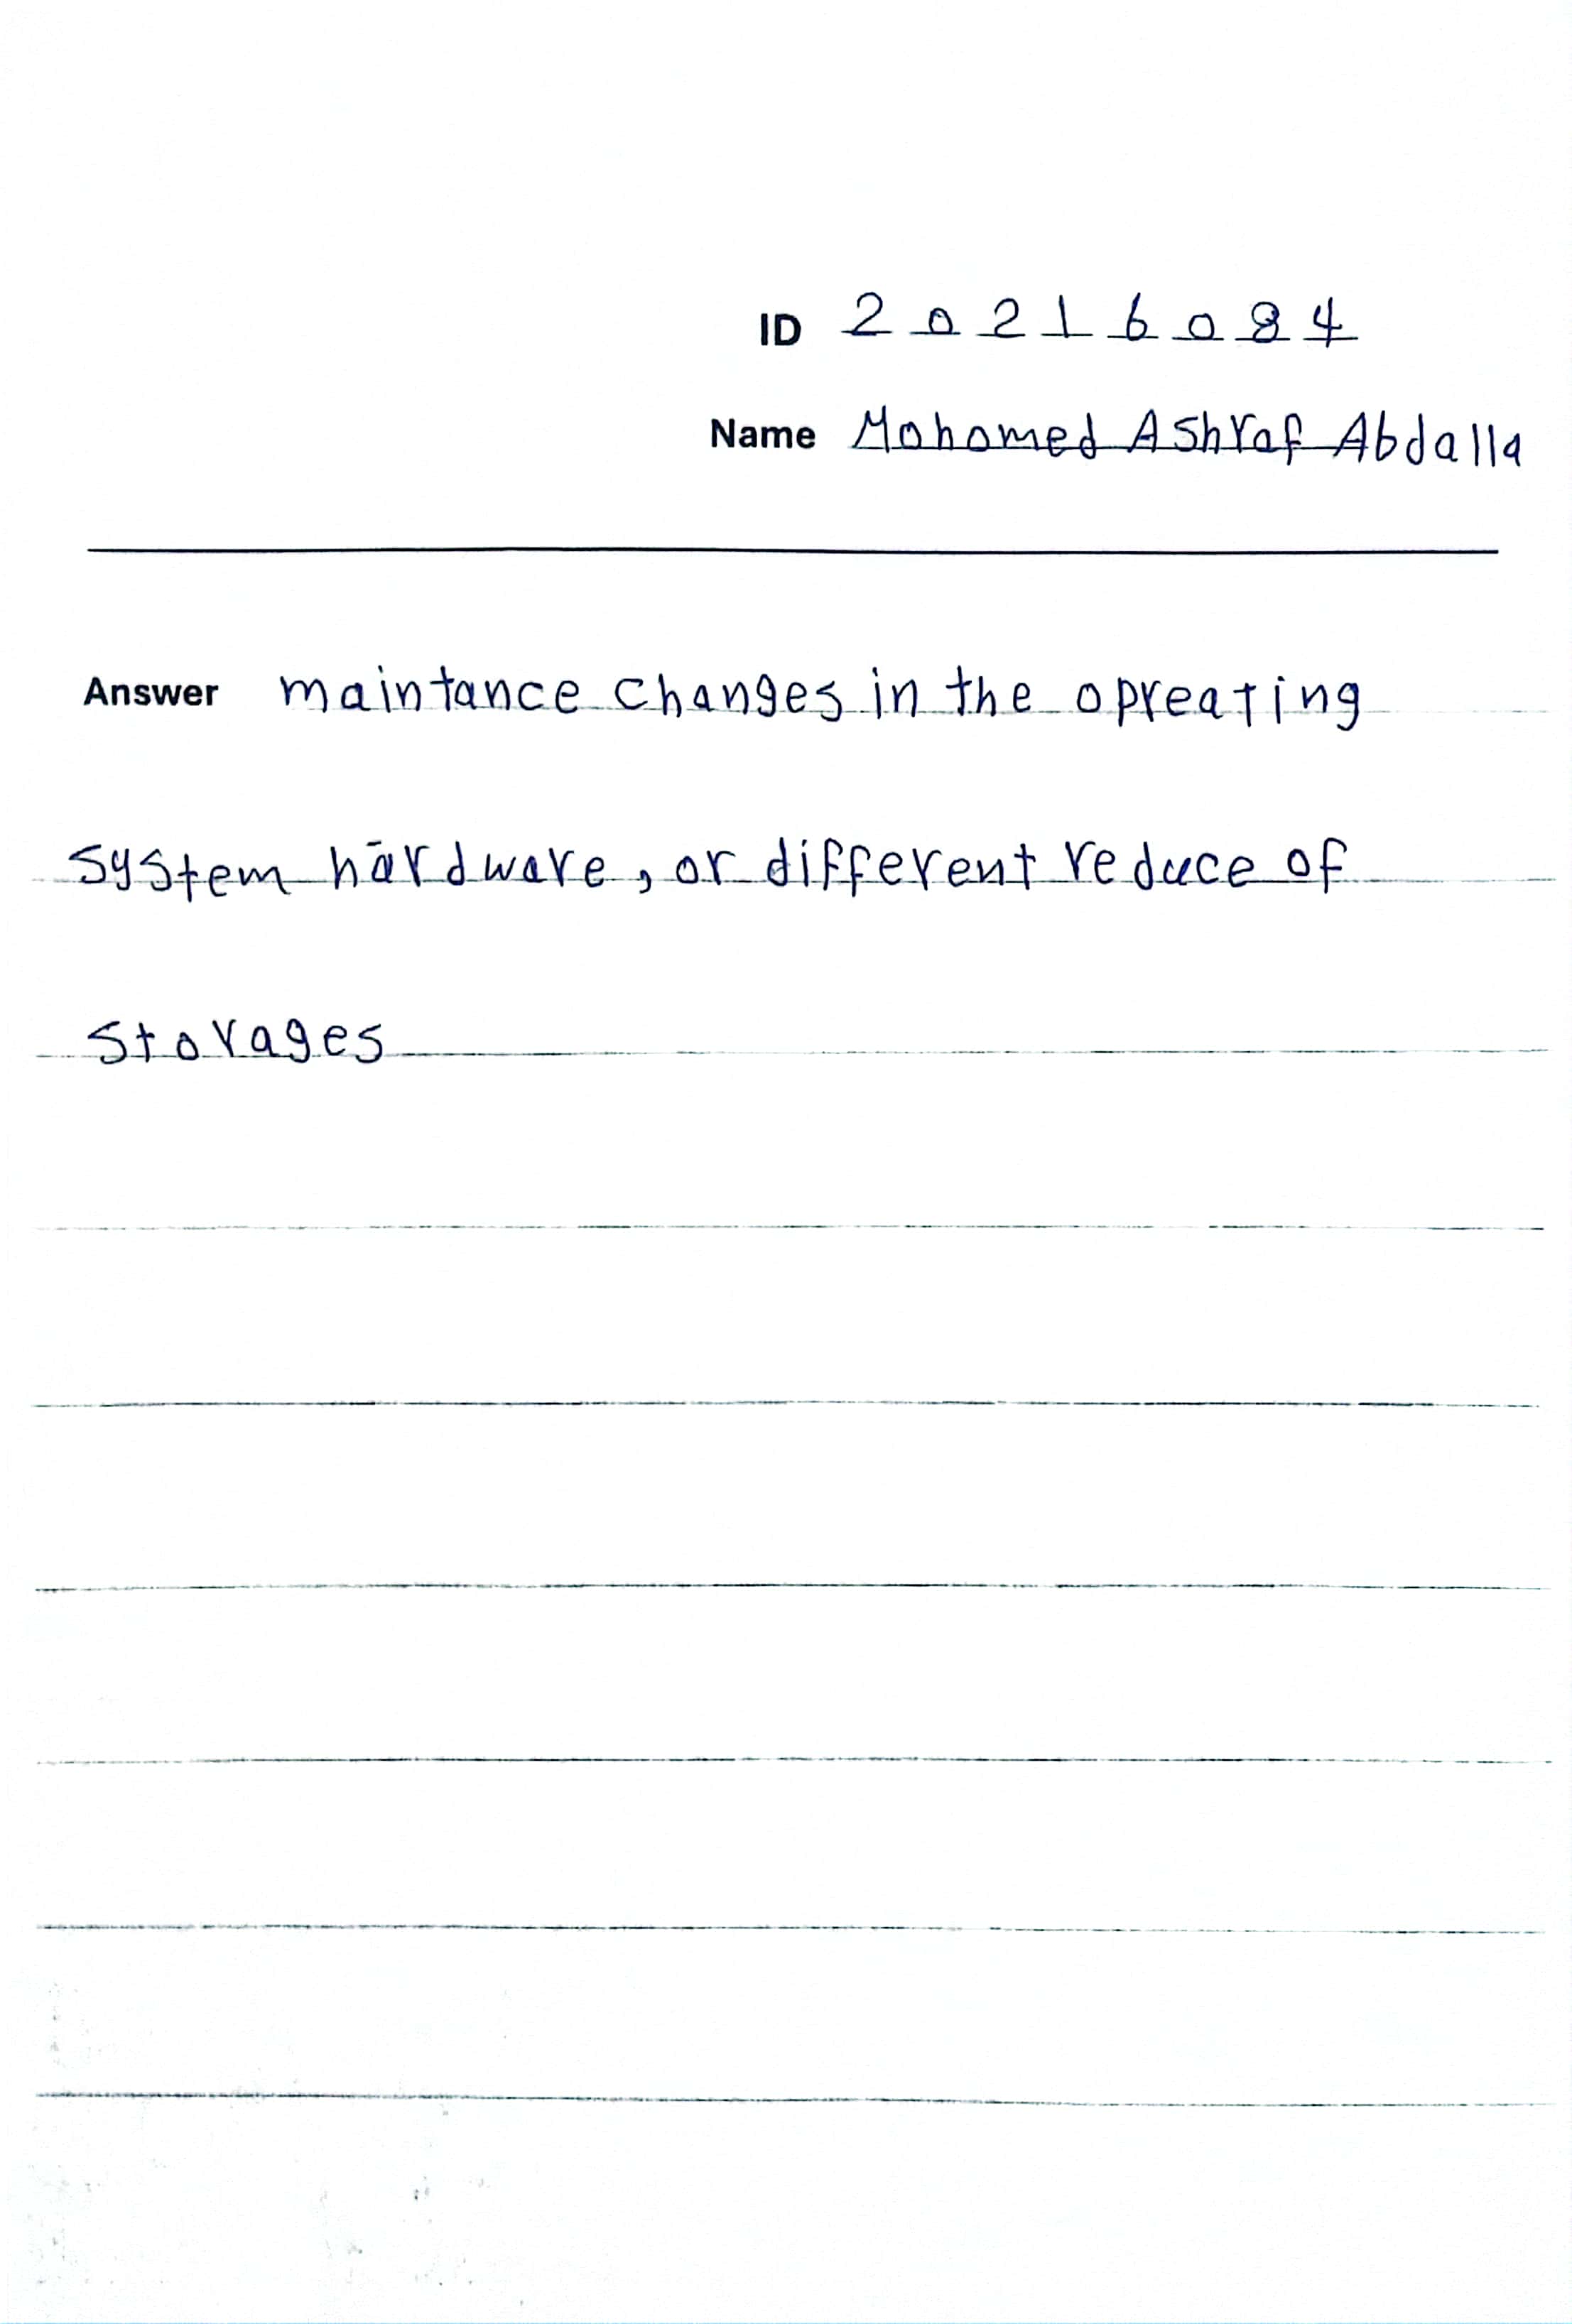 ID 20216084
Name Mohomed Ashraf Abdalla
Answer maintance changes in the opreating
system hardware, or different reduce of
storages